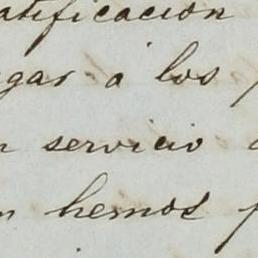 atificacion
gar á los
servicio
hemos